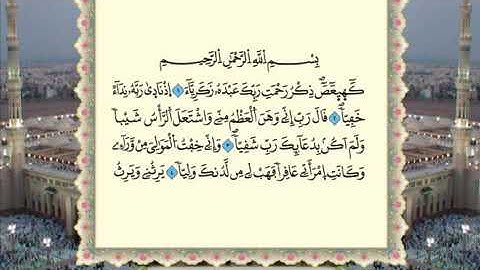 بِسْمِ اِللَّهِ اِلرَّحْمَٰنِ اِلرَّحِيمِ
كَٓهيعَٓصَٓ ذِكْرُ رَحْمَتِ رَبِّكَ عَبْدَهُۥ زَكَرِيَّآءَ ١ اِذْ نَادَىٰ رَبَّهُۥ نِدَآءً
خَفِيّاٗ ٢ قَالَ رَبِّ إِنِّے وَهَنَ اَلْعَظْمُ مِنِّے وَاشْتَعَلَ اَلرَّأْسُ شَيْباٗ
وَلَمَ اَكُنۢ بِدُعَآئِكَ رَبِّ شَقِيّاٗ ٣ وَإِنِّے خِفْتُ اُلْمَوَٰلِيَ مِنْ وَّرَآءِے
وَكَانَتِ اِمْرَأَتِے عَاقِراٗ فَهَبْ لِے مِن لَّدُنكَ وَلِيّاٗ ٤ يَرِثُنِے وَيَرِثُ